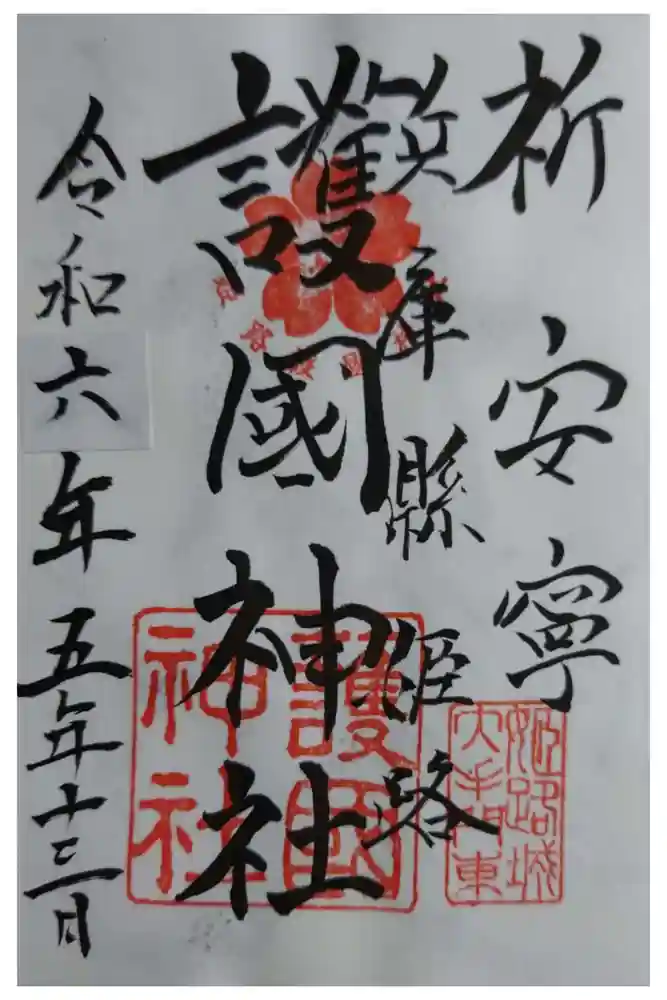 祈安寧
兵庫縣姫路
護國神社
令和六年五年十三日
護國
神社
姫路城
大手門東